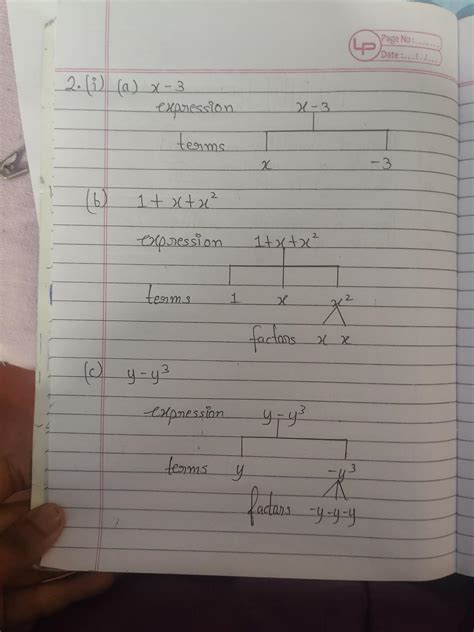 LP Page No:.......
Date:.../.../...
2.(i) (a) x-3
expression x-3
terms
x -3
(b) 1+x+x²
expression 1+x+x²
terms 1 x x²
factors x x
(c) y-y³
expression y-y³
terms y -y³
factors -y-y-y